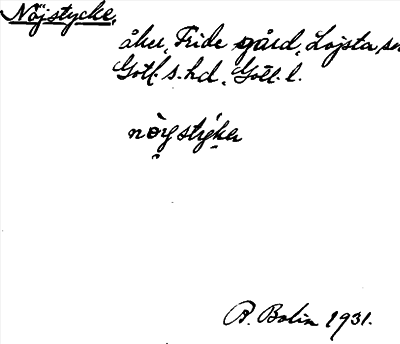 Nöjstycke,
åker, Fride gård, Lojsta, sn
Gotl. s. hd. Gotl. l.
nöıstyker
B. Bolin 1931.